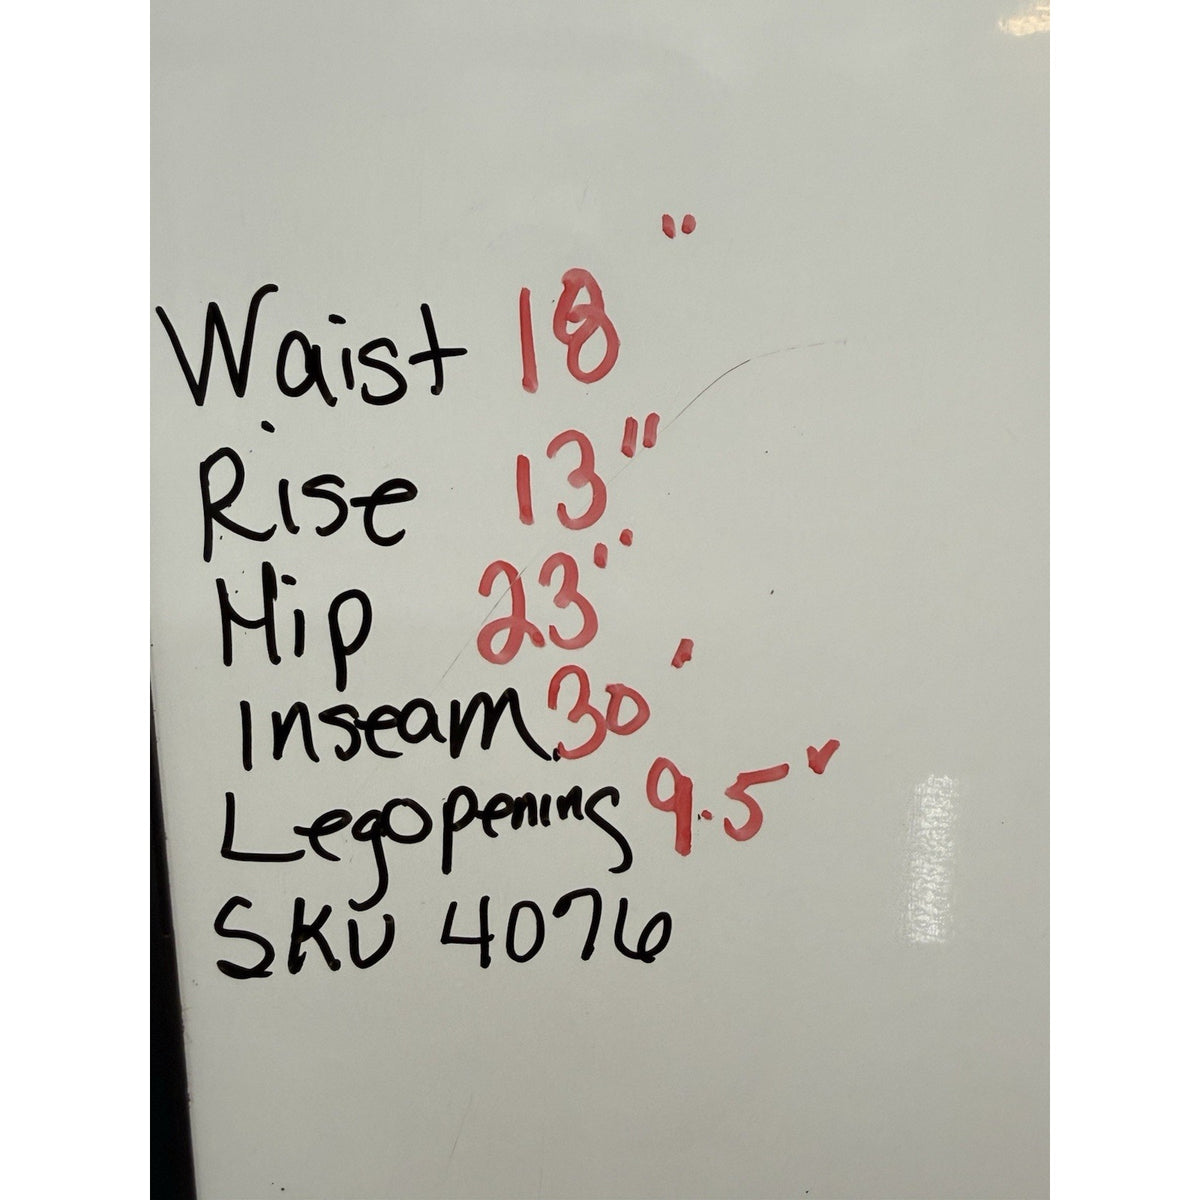 Waist 18"
Rise 13"
Hip 23"
Inseam 30'
Leg Opening 9.5"
SKU 4076